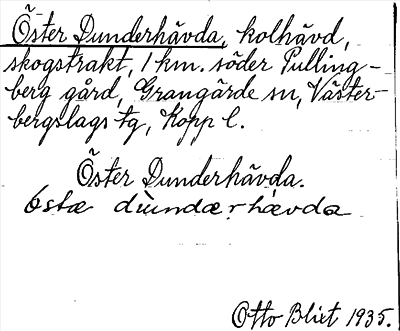 Öster Dunderhävda, kolhävd,
skogstrakt, 1 km. söder Pulling-
berg gård, Grangärde sn, Väster-
bergslags tg, Kopp l.
Öster Dunderhävda.
östæ dùndærhævda
Otto Blixt 1935.